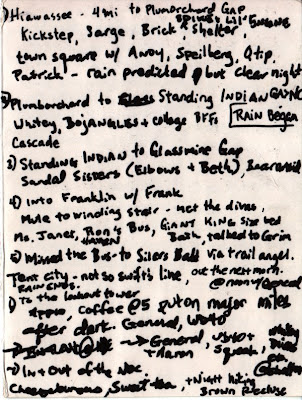 1) Hiawassee - 4 mi to Plumorchard Gap
Kickstep, Sarge, Brick & Shelter,
town square w/ Speilberg, Qtip,
Patrick - rain predicted but clear night
2) Plumorchard to Standing INDIAN
Whitey, BOJANGLES + college BFFs
RAIN Began
Cascade
3) STANDING INDIAN to Glassmine Gap
Sandal Sisters (Elbows + Beth),
4) Into Franklin w/ Frank
Mule to winding stair - met the divas,
Ms. Janet, Ron's Bus, GIANT KING size bed
HAVEN
Bath, talked to Grim
5) Missed the Bus to Silers Bald via trail angel.
Tent city - not so swift's line, out the next morn.
RAIN ENDS.
To the lookout tower
coffee @5 put on major miles
after dark. General,
General,
+ Aaron Squeak,
In + Out of the NOC.
Cheeseburgers, Sweet tea, + Night hiking
Brown